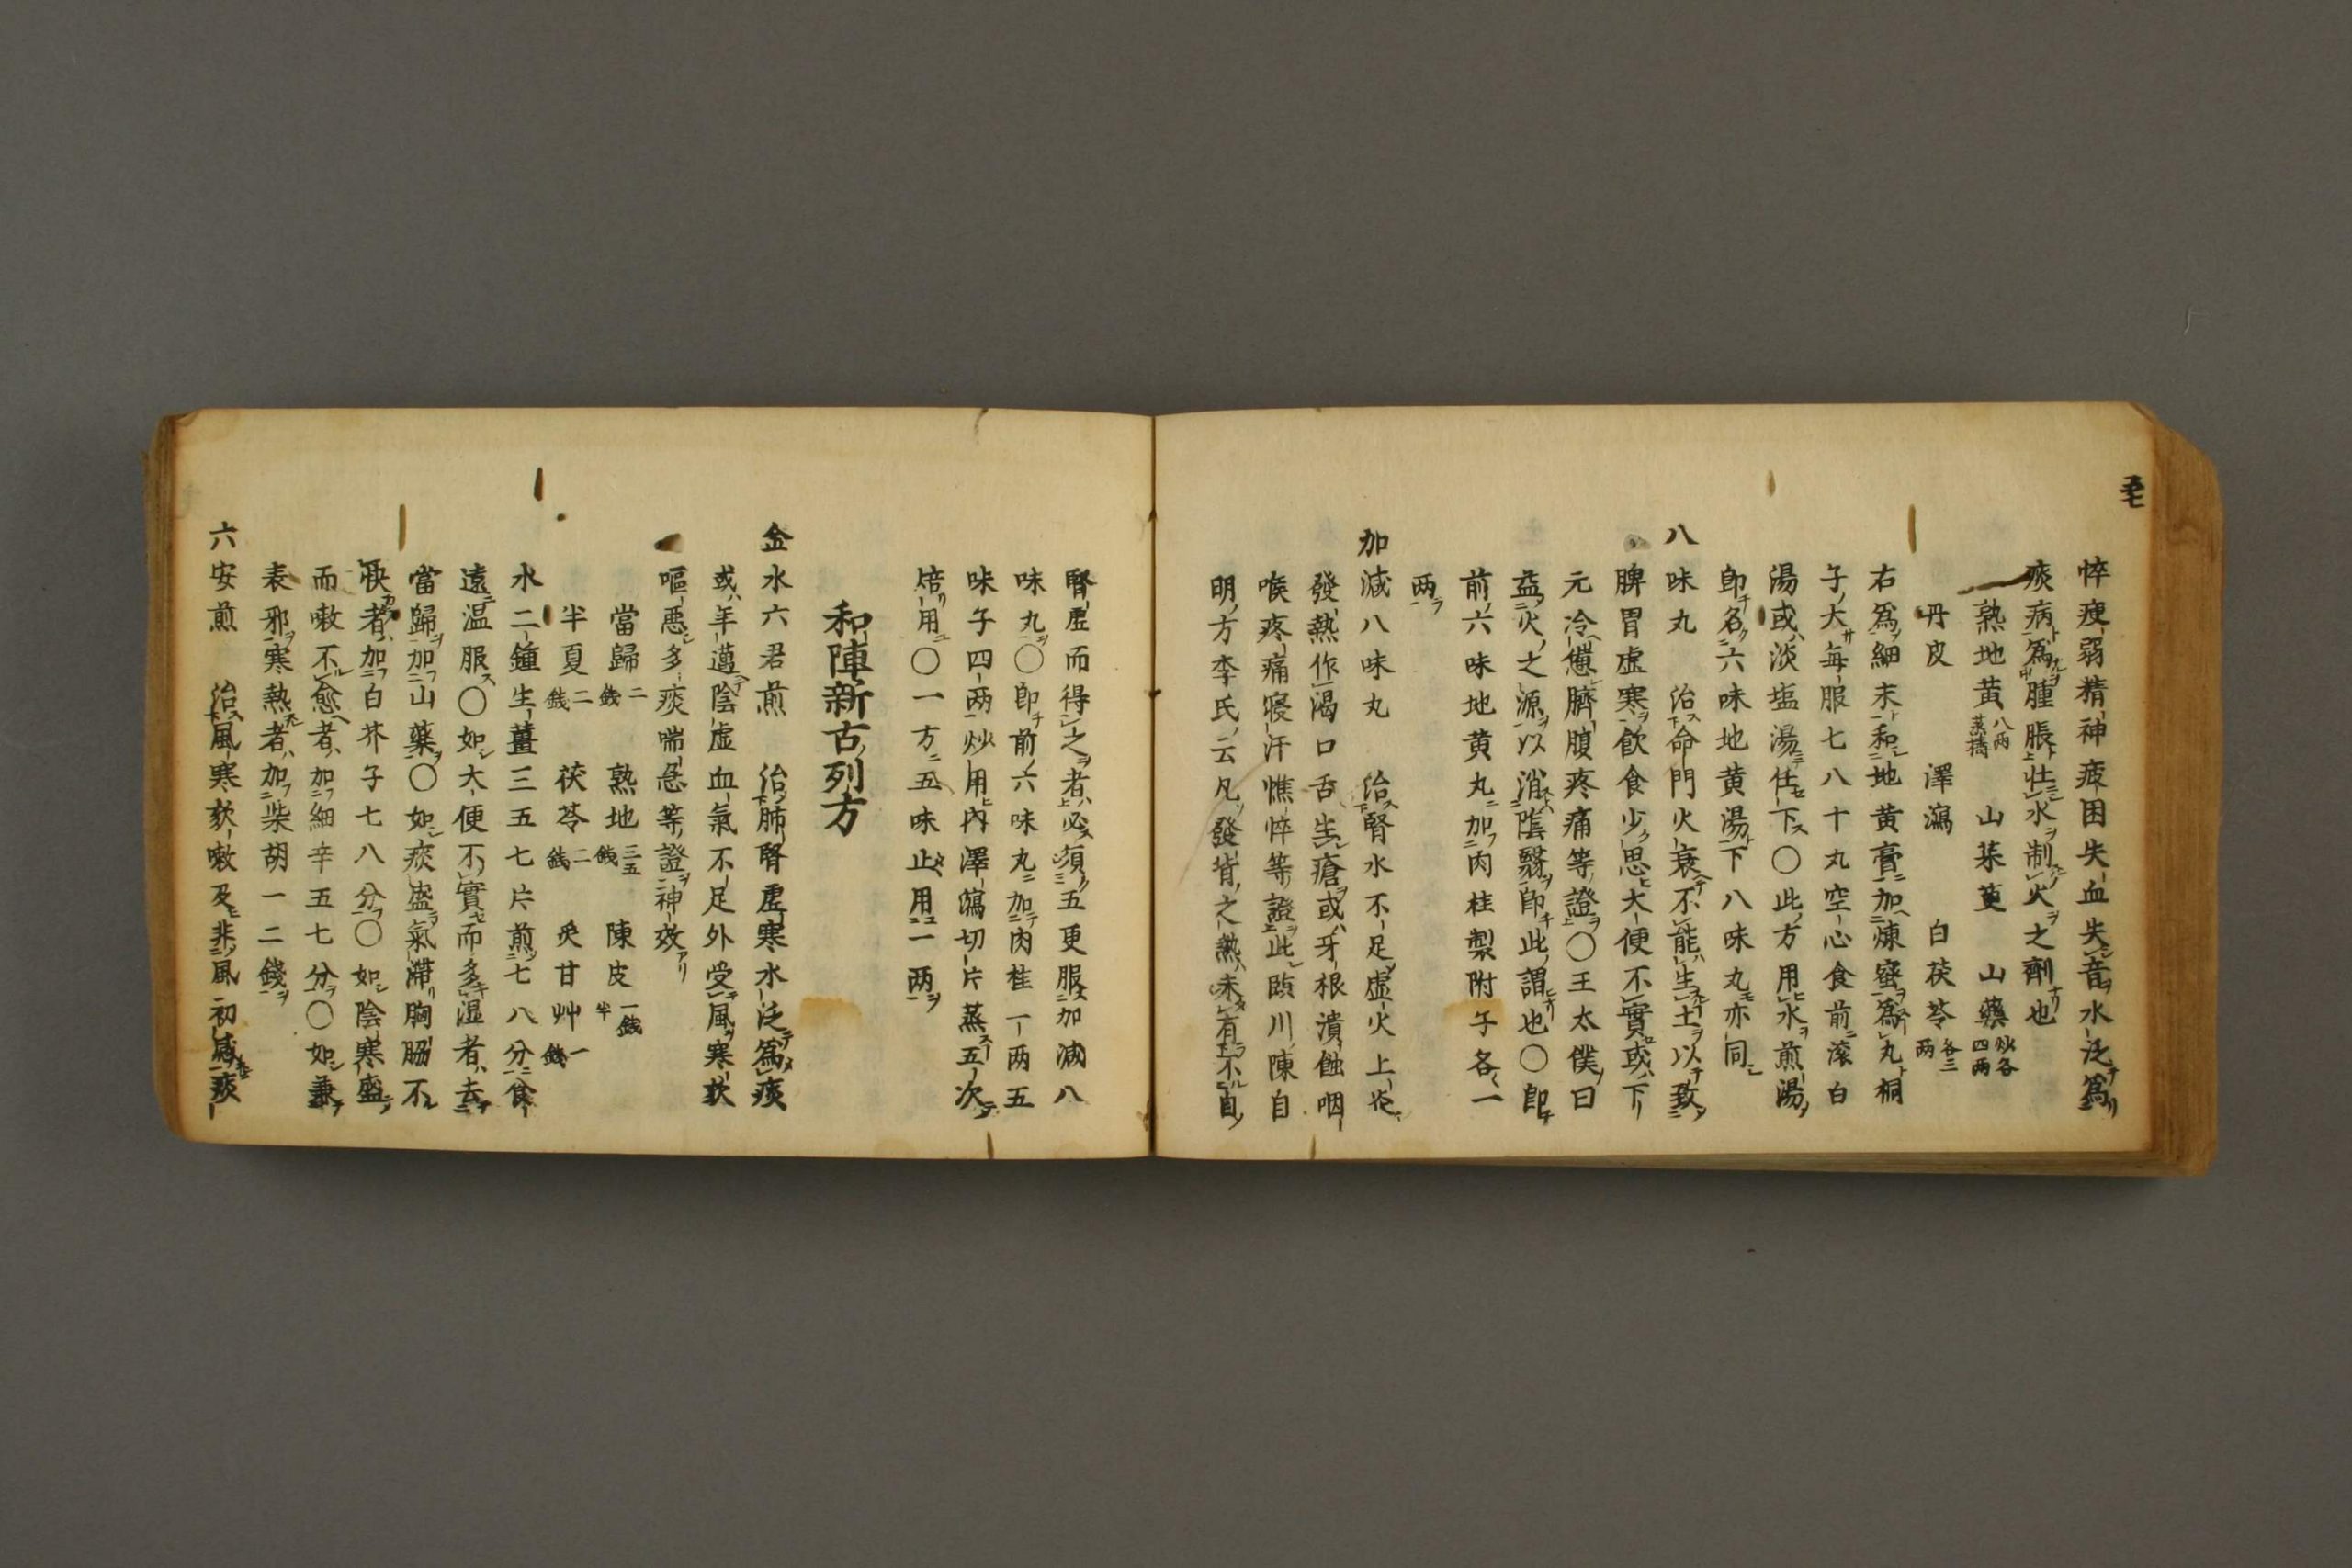 悴瘦弱精神疲困失血失音水泛爲
痰病爲腫脹壮水制火之劑也
熟地黄八两蒸擣 山茱萸 山藥炒各四两
丹皮 澤瀉 白茯苓各三两
右爲細末和地黄膏加煉蜜爲丸桐
子大每服七八十丸空心食前滚白
湯或淡塩湯任下〇此方用水煎湯
即名六味地黄湯下八味丸亦同
八味丸 治命門火衰不能生土以致
脾胃虚寒飲食少思大便不實或下
元冷憊臍腹疼痛等證〇王太僕曰
益火之源以消陰翳即此謂也〇即
前六味地黄丸加肉桂製附子各一
两
加減八味丸 治腎水不足虚火上炎
發熱作渇口舌生瘡或牙根潰蝕咽
喉疼痛寝汗憔悴等證此頤川陳自
明方李氏云凡發背之熱未有不自
腎虚而得之者必須五更服加減八
味丸〇即前六味丸加肉桂一两五
味子四两炒用内澤瀉切片蒸五次
焙用〇一方五味止用一两
和陣新古列方
金水六君煎 治肺腎虚寒水泛爲痰
或年邁陰虚血氣不足外受風寒欬
嘔悪多痰喘急等證神效
當歸二銭 熟地三五銭 陳皮一銭半
半夏二銭 茯苓二銭 炙甘艸一銭
水二鐘生薑三五七片煎七八分食
遠温服〇如大便不實而多湿者去
當歸加山藥〇如痰盛氣滞胸脇不
快者加白芥子七八分〇如陰寒盛
而嗽不愈者加細辛五七分〇如兼
表邪寒熱者加柴胡一二錢
六安煎 治風寒欬嗽及非風初感痰